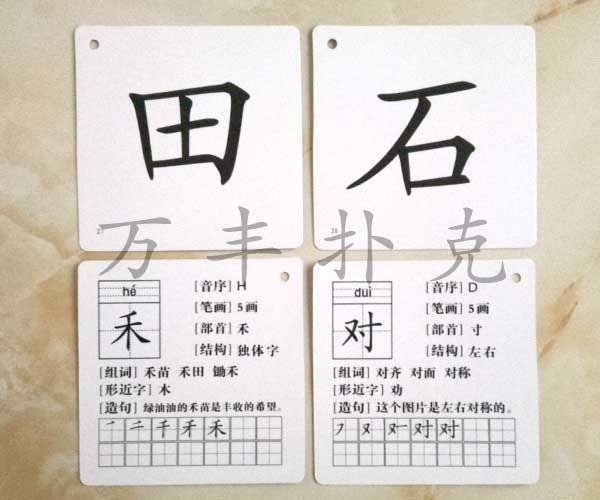 田
27
石
26
万丰扑克
hé
禾
[音序] H
[笔画] 5画
[部首] 禾
[结构] 独体字
[组词] 禾苗 禾田 锄禾
[形近字] 木
[造句] 绿油油的禾苗是丰收的希望。
一 二 千 禾 禾
duì
对
[音序] D
[笔画] 5画
[部首] 寸
[结构] 左右
[组词] 对齐 对面 对称
[形近字] 劝
[造句] 这个图片是左右对称的。
フ 又 对 对